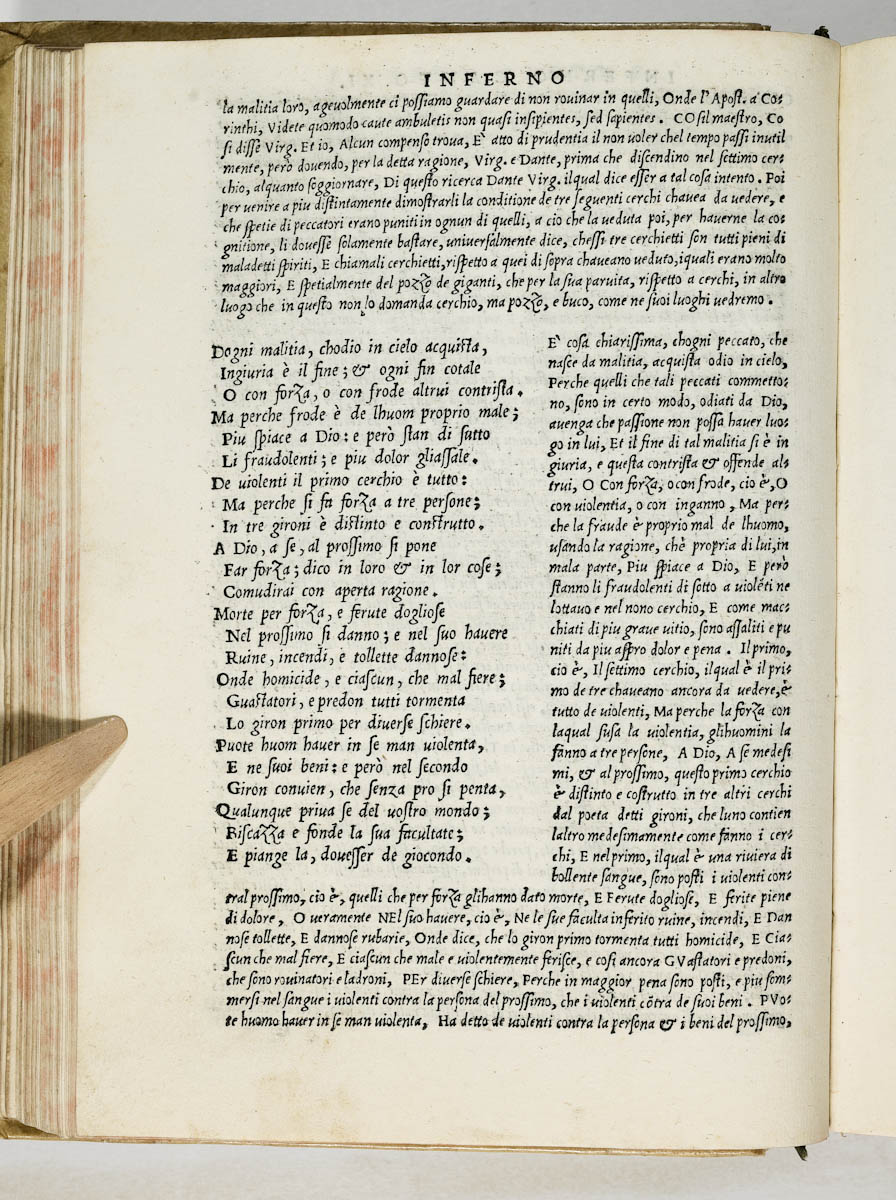 INFERNO
la malitia loro, agevolmente ci possiamo guardare di non rovinar in quelli, Onde l'Apost. a Co-
rinthi, Videte quomodo caute ambuletis non quasi insipientes, sed sapientes. COsil maestro, Co
si disse Virg. Et io, Alcun compenso trova, E' atto di prudentia il non voler chel tempo passi inutil
mente, però dovendo, per la detta ragione, Virg. e Dante, prima che discendino nel settimo cer-
chio, alquanto soggiornare, Di questo ricerca Dante Virg. ilqual dice esser a tal cosa intento. Poi
per venire a piu distintamente dimostrarli la conditione de tre seguenti cerchi chavea da vedere, e
che spetie di peccatori erano puniti in ognun di quelli, a cio che la veduta poi, per haverne la co-
gnitione, li dovesse solamente bastare, universalmente dice, chessi tre cerchietti son tutti pieni di
maladetti spiriti, E chiamali cerchietti, rispetto a quei di sopra chaveano veduto, iquali erano molto
maggiori, E spetialmente del pozzo de giganti, che per la sua parvita, rispetto a cerchi, in altro
luogo che in questo non lo domanda cerchio, ma pozzo, e buco, come ne suoi luoghi vedremo.
Dogni malitia, chodio in cielo acquista,
Ingiuria è il fine; & ogni fin cotale
O con forza, o con frode altrui contrista.
Ma perche frode è de lhuom proprio male;
Piu spiace a Dio: e però stan di sutto
Li fraudolenti; e piu dolor gliassale.
De violenti il primo cerchio è tutto:
Ma perche si fa forza a tre persone;
In tre gironi è distinto e construtto.
A Dio, a se, al prossimo si pone
Far forza; dico in loro & in lor cose;
Comudirai con aperta ragione.
Morte per forza, e ferute dogliose
Nel prossimo si danno; e nel suo havere
Ruine, incendi, e tollette dannose:
Onde homicide, e ciascun, che mal fiere;
Guastatori, e predon tutti tormenta
Lo giron primo per diverse schiere.
Puote huom haver in se man violenta,
E ne suoi beni: e però nel secondo
Giron convien, che senza pro si penta,
Qualunque priva se del vostro mondo;
Biscazza e fonde la sua facultate;
E piange la, dovesser de giocondo.
E' cosa chiarissima, chogni peccato, che
nasce da malitia, acquista odio in cielo,
Perche quelli che tali peccati commetto-
no, sono in certo modo, odiati da Dio,
avenga che passione non possa haver luo-
go in lui, Et il fine di tal malitia si è in
giuria, e questa contrista & offende al-
trui, O Con forza, o con frode, cio è, O
con violentia, o con inganno, Ma per-
che la fraude è proprio mal de lhuomo,
usando la ragione, chè propria di lui, in
mala parte, Piu spiace a Dio, E però
stanno li fraudolenti di sotto a violēti ne
lottavo e nel nono cerchio, E come mac-
chiati di piu grave vitio, sono assaliti e pu
niti da piu aspro dolor e pena. Il primo,
cio è, Il settimo cerchio, ilqual è il pri-
mo de tre chaveano ancora da vedere, è
tutto de violenti, Ma perche la forza con
laqual susa la violentia, glihuomini la
fanno a tre persone, A Dio, A se medesi
mi, & al prossimo, questo primo cerchio
è distinto e costrutto in tre altri cerchi
dal poeta detti gironi, che luno contien
laltro medesimamente come fanno i cer-
chi, E nel primo, ilqual è una riviera di
bollente sangue, sono posti i violenti con-
tral prossimo, cio è, quelli che per forza glihanno dato morte, E Ferute dogliose, E ferite piene
di dolore, O veramente NEl suo havere, cio è, Ne le sue faculta inferito ruine, incendi, E Dan
nose tollette, E dannose rubarie, Onde dice, che lo giron primo tormenta tutti homicide, E Cia-
scun che mal fiere, E ciascun che male e violentemente ferisce, e cosi ancora GVastatori e predoni,
che sono rovinatori e ladroni, PEr diverse schiere, Perche in maggior pena sono posti, e piu som-
mersi nel sangue i violenti contra la persona del prossimo, che i violenti cōtra de suoi beni. PVo-
te huomo haver in se man violenta, Ha detto de violenti contra la persona & i beni del prossimo,